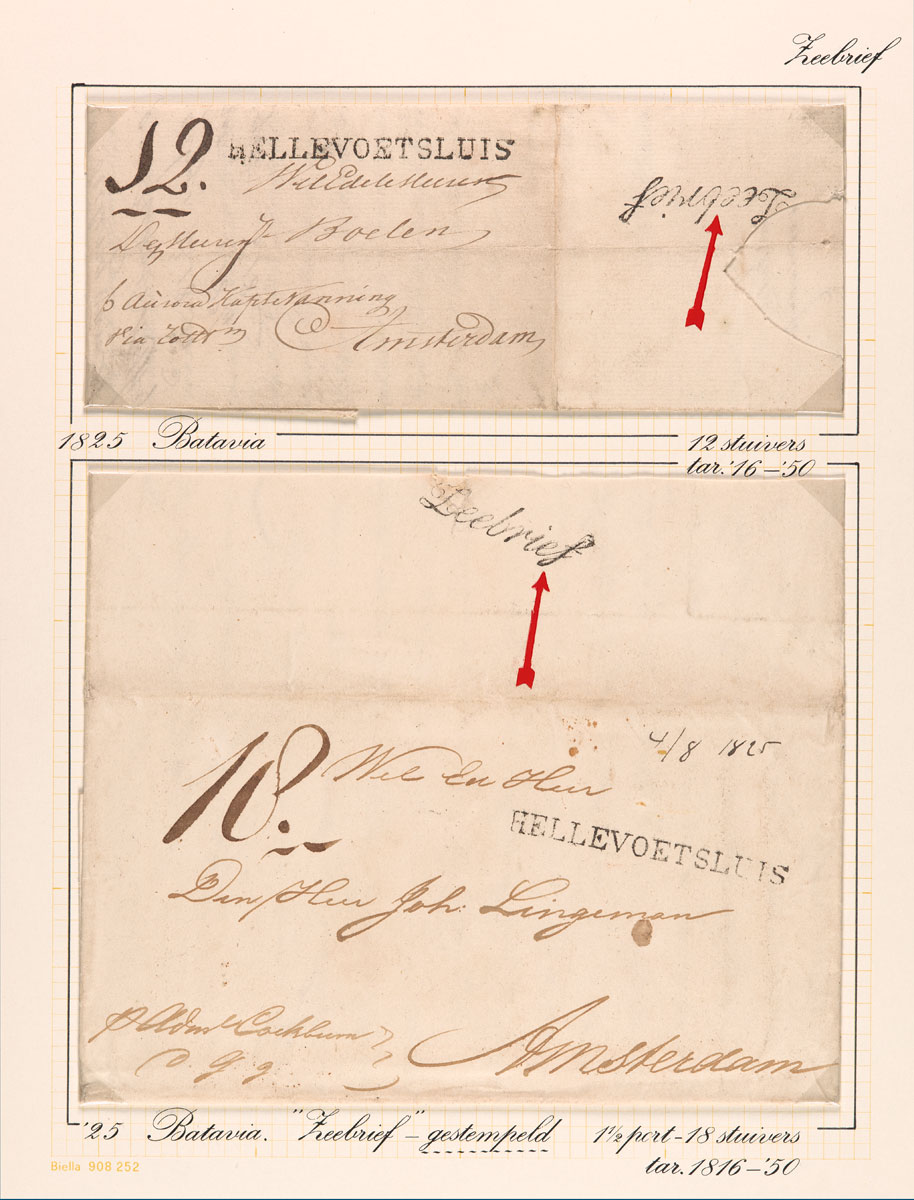 Zeebrief
12.
HELLEVOETSLUIS
WelEdele Heeren
Boelen
Zeebrief
p Aurora Kapt Nanning
via Rott
Amsterdam
1825 Batavia
12 stuivers
tar. '16 – '50
Zeebrief
4/8 1825
18.
Wel Ed Heer
HELLEVOETSLUIS
Den Heer Joh: Lingeman
p Adml Cockburn
Amsterdam
'25 Batavia. "Zeebrief" – gestempeld 1½ port – 18 stuivers
tar. 1816 – '50
Biella 908 252